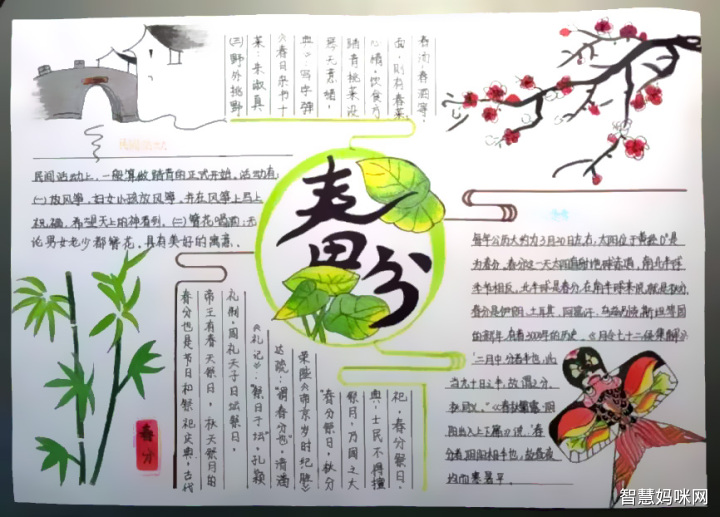 春分
民间活动上，一般算做踏青的正式开始。活动有
(一)放风筝，妇女小孩放风筝，并在风筝上写上
祝福，希望天上的神看到。(二)簪花喝酒：无
论男女老少都簪花。具有美好的寓意。
(三)野外挑野
菜：朱淑真
《春日杂书十
典》：写字弹
琴无意绪，
踏青挑菜没
心情，饮食方
面，则有春菜、
春汤、春酒等。
每年公历大约为3月20日左右，太阳位于黄经0°是
为春分。春分这一天太阳直射地球赤道，南北半球
季节相反，北半球是春分，在南半球来说就是秋分。
春分是伊朗、土耳其、阿富汗、乌兹别克斯坦等国
的新年，有着3000年的历史。《月令七十二候集解》
"二月中，分者半也，此
当九十日之半，故谓之分。
秋同义。"《春秋繁露·阴
阳出入上下篇》说："春
分者，阴阳相半也，故昼夜
均而寒暑平。
春分也是节日和祭祀庆典，古代
帝王有春天祭日，秋天祭月的
礼制。周礼天子日坛祭日。
《礼记》："祭日于坛"。孔颖
达疏："谓春分也"。清潘
荣陛《帝京岁时纪胜》
"春分祭日，秋分
祭月，乃国之大
典，士民不得擅
祀。春分祭日，
春分
智慧妈咪网